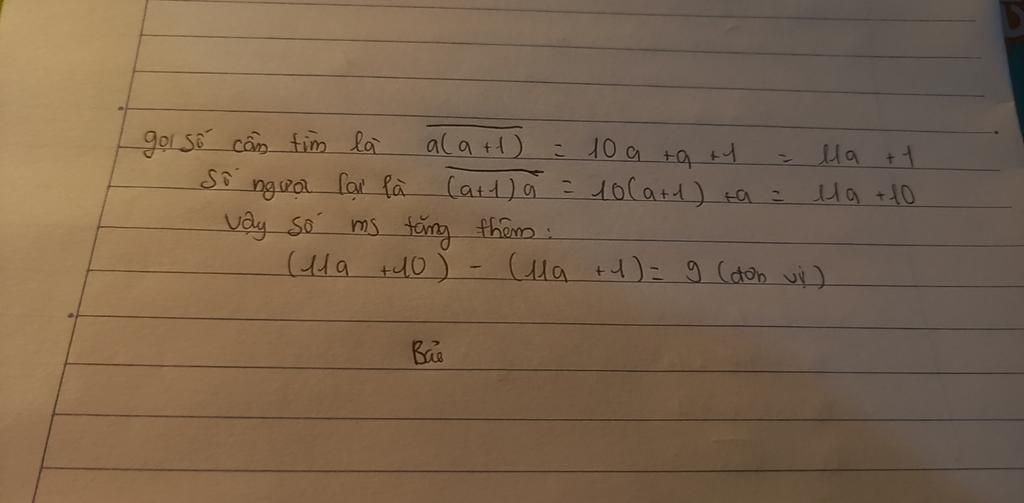 gọi số cần tìm là a(a+1) = 10a +a +1 = 11a +1
Số ngược lại là (a+1)a = 10(a+1) +a = 11a +10
Vậy số ms tăng thêm:
(11a +10) - (11a +1) = 9 (đơn vị)
Bảo